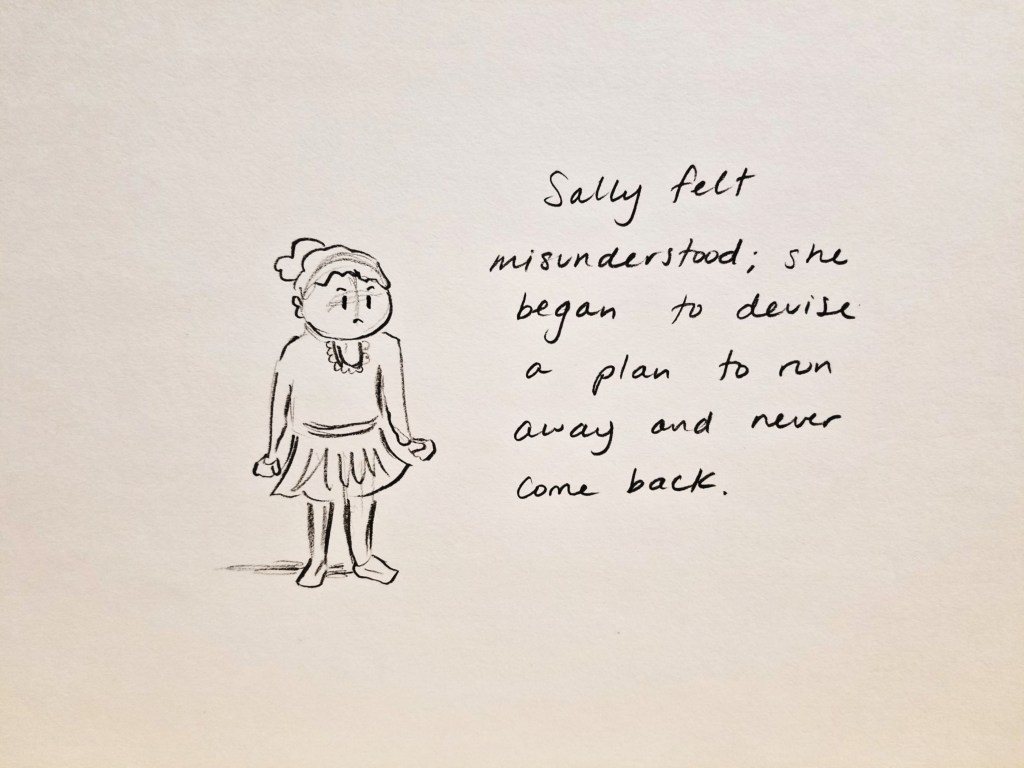 Sally felt
misunderstood; she
began to devise
a plan to run
away and never
come back.